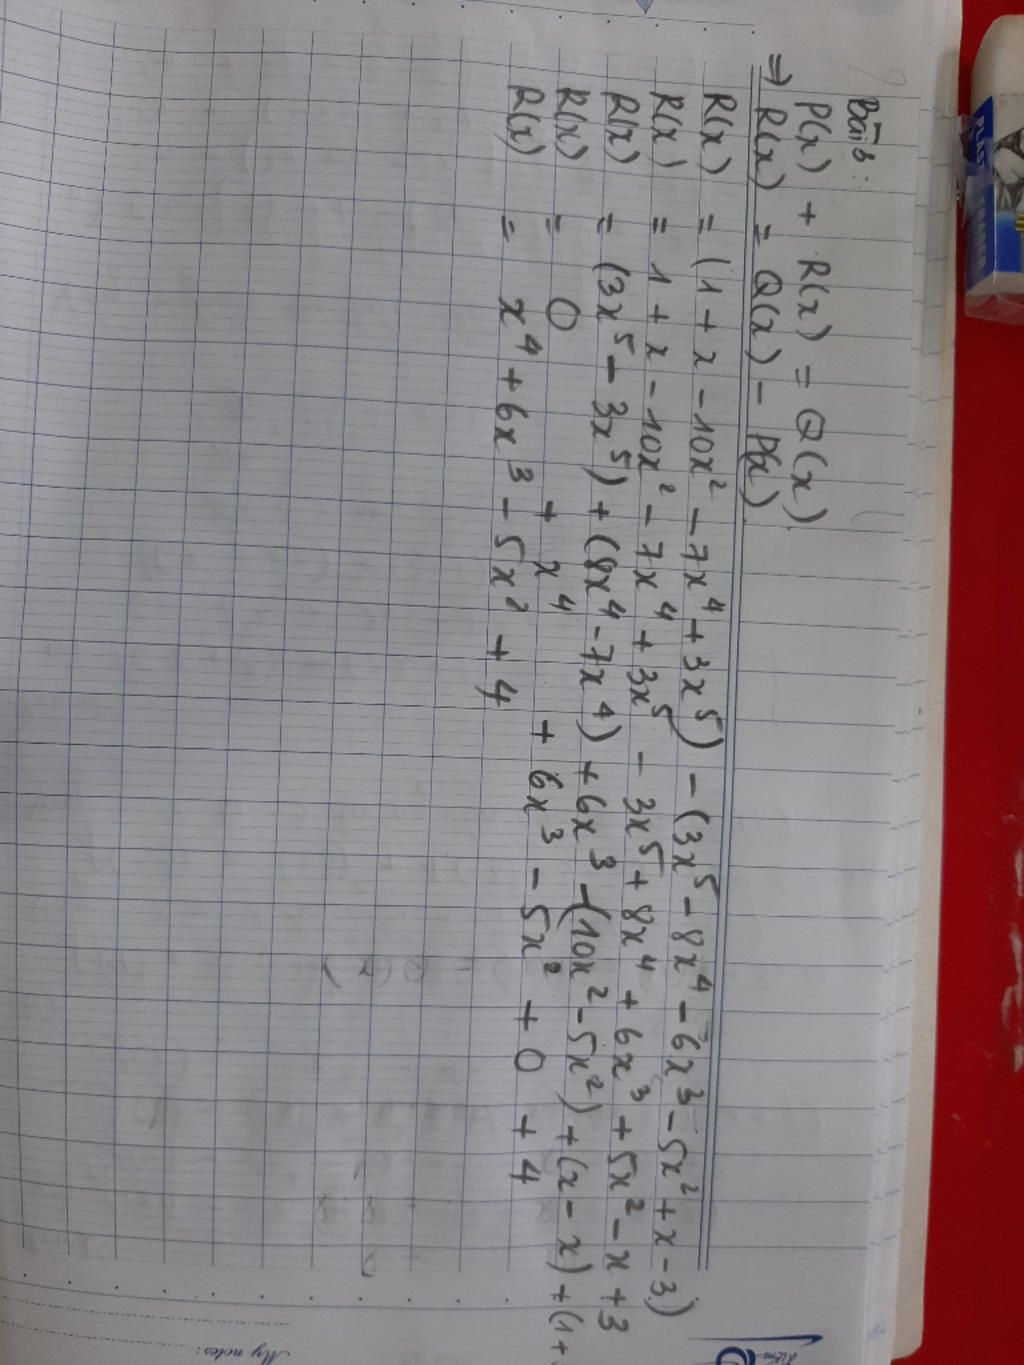 Bài 6:
P(x) + R(x) = Q(x)
⇒ R(x) = Q(x) - P(x)
R(x) = (1 + x - 10x² - 7x⁴ + 3x⁵) - (3x⁵ - 8x⁴ - 6x³ - 5x² + x - 3)
R(x) = 1 + x - 10x² - 7x⁴ + 3x⁵ - 3x⁵ + 8x⁴ + 6x³ + 5x² - x + 3
R(x) = (3x⁵ - 3x⁵) + (8x⁴ - 7x⁴) + 6x³ - (10x² - 5x²) + (x - x) + (1+
R(x) = 0 + x⁴ + 6x³ - 5x² + 0 + 4
R(x) = x⁴ + 6x³ - 5x² + 4
My notes:
PLUS